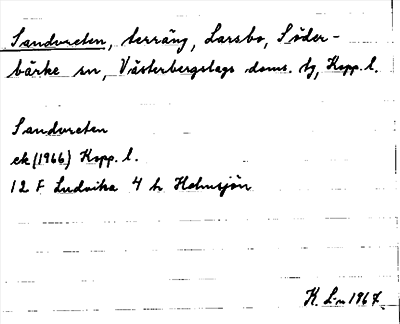 Sandvreten, terräng, Larsbo, Söder-
bärke sn, Västerbergslags doms. tg, Kopp. l.
Sandvreten
ek (1966) Kopp. l.
12 F Ludvika 4 h Holmsjön
K. L-n 1967.